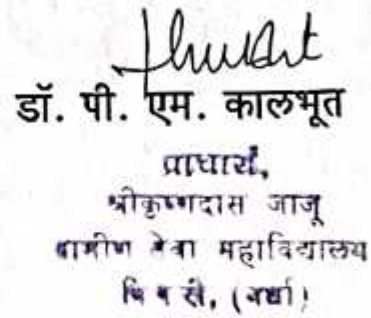 डॉ. पी. एम. कालभूत
प्राचार्य,
श्रीकृष्णदास जाजू
ग्रामीण सेवा महाविद्यालय
(वर्धा)